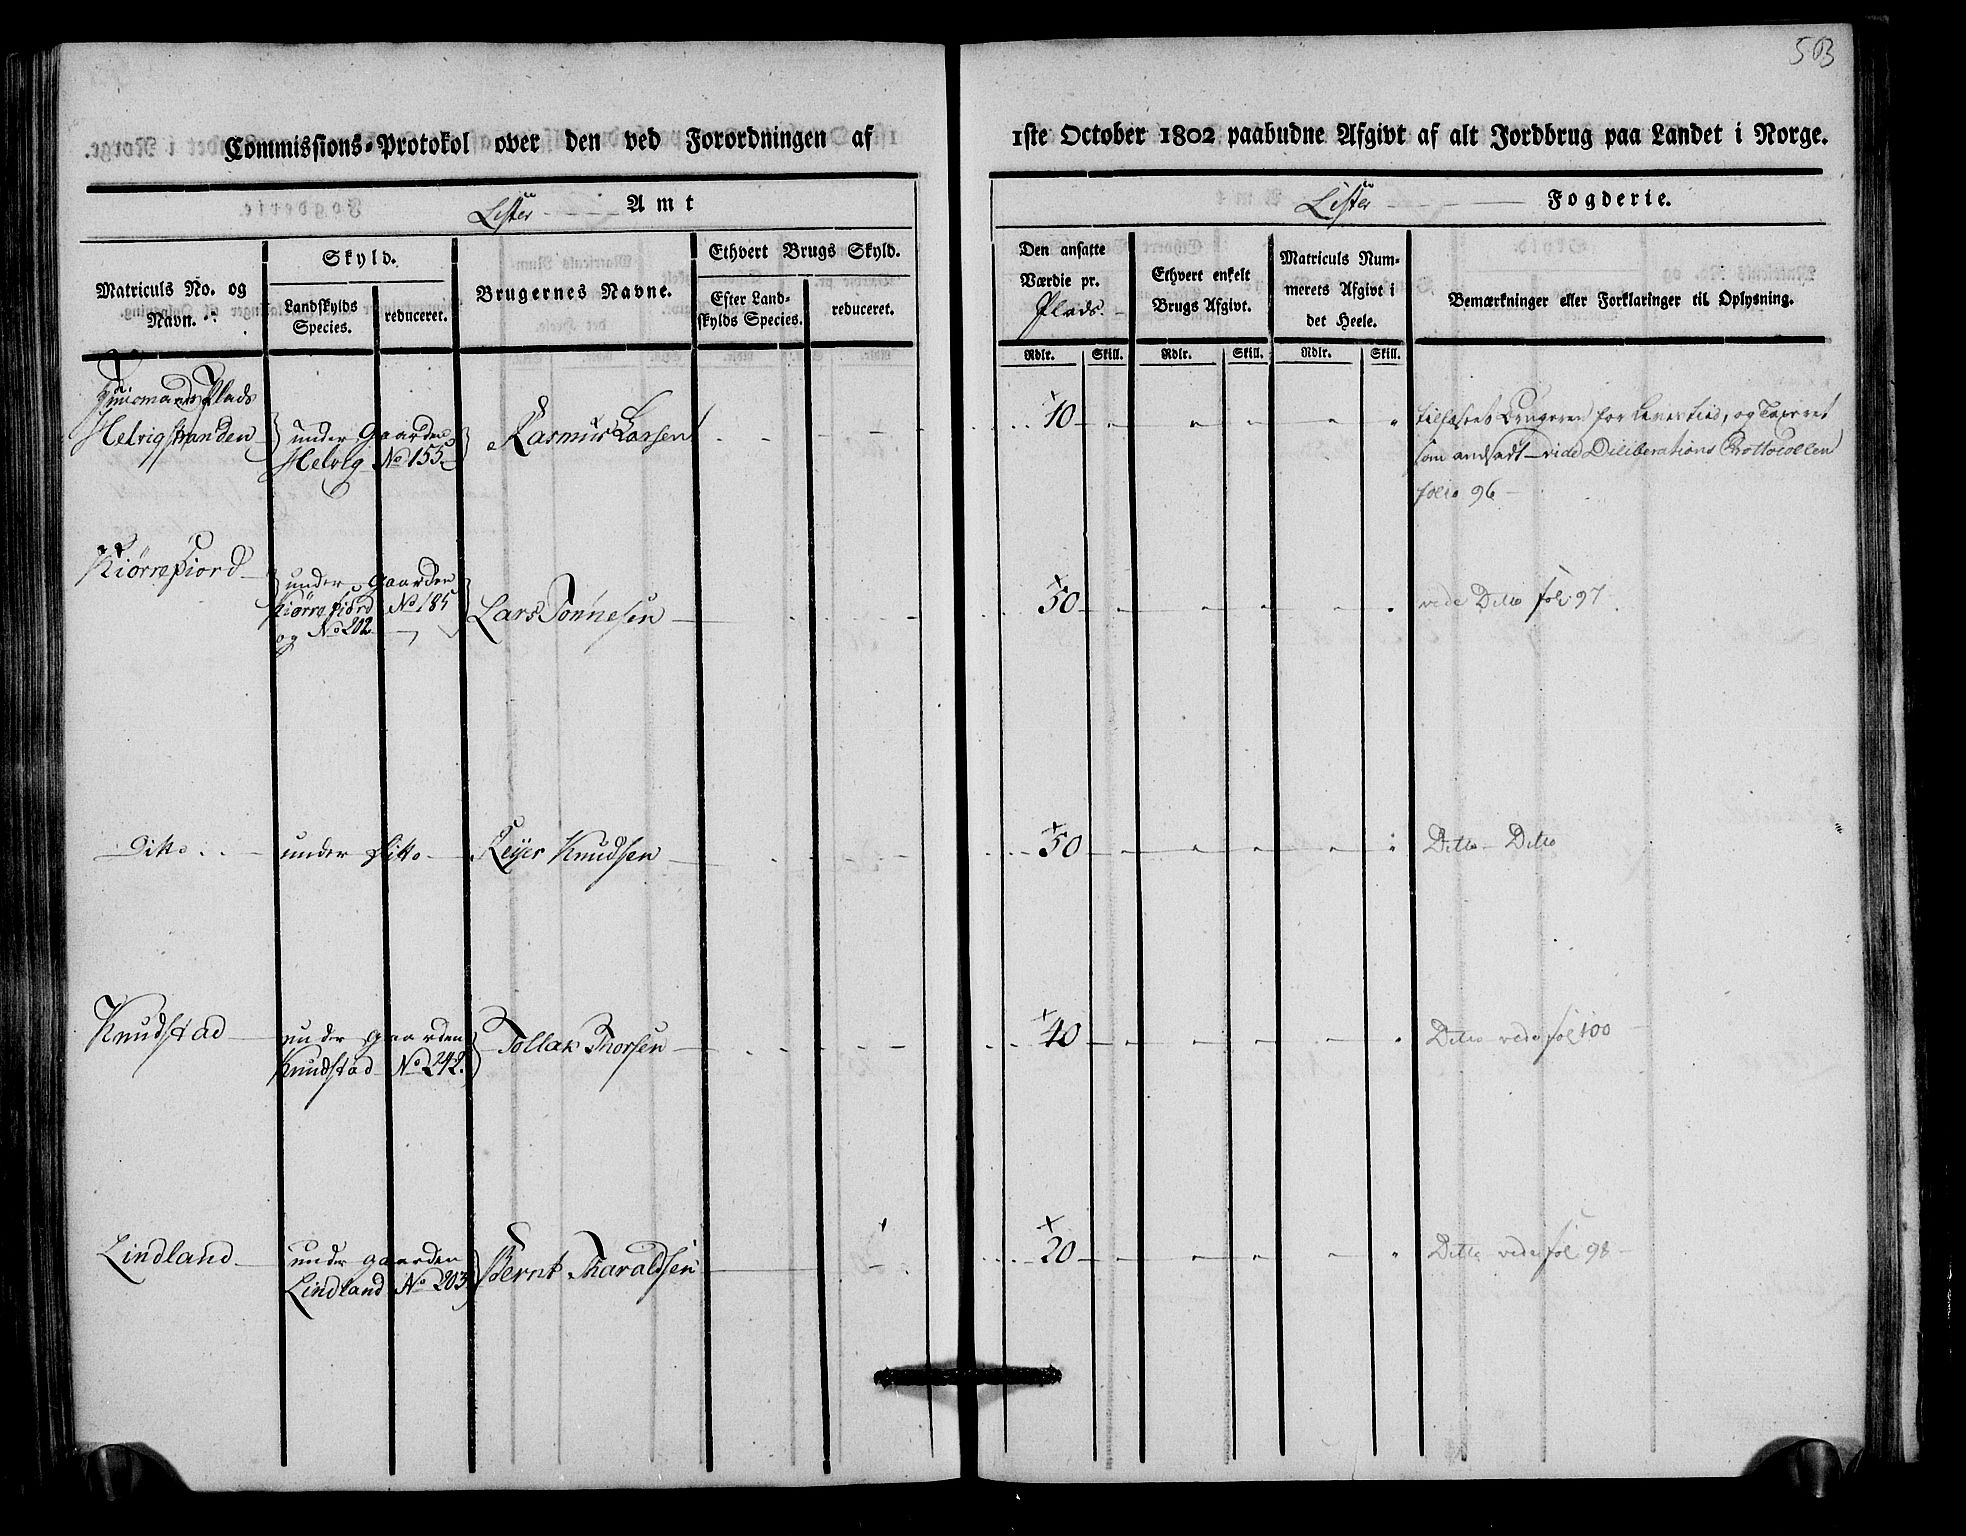 503
Commissions-Protokol over den ved Forordningen af 1ste October 1802 paabudne Afgivt af alt Jordbrug paa Landet i Norge.
Lister Amt
Lister Fogderie.
Matriculs No. og Navn.
Skyld.
Landskylds Species.
reduceret.
Brugernes Navne.
Ethvert Brugs Skyld.
Efter Landskylds Species.
reduceret.
Den ansatte Værdie pr. Plads
Ethvert enkelt Brugs Afgivt.
Matriculs Nummerets Afgivt i det Heele.
Bemærkninger eller Forklaringer til Oplysning.
Rdlr. Skill. Rdlr. Skill. Rdlr. Skill.
Huusmands Plads
Helvigstranden under Gaarden Rasmus Larsen 10 Brugeren for Levetiid, og Taxeret
Helvig No 155 som andsadt vide Deliberations Prottocollen
folio 96
Kiørrefiord under Gaarden
Kiørrefiord No 185 Lars Tønnesen 50 vide Ditto fol 97
og No 202
Ditto under Ditto Reijer Knudsen 50 Ditto Ditto
Knudstad under Gaarden Tollak Thorsen 40 Ditto vide fol 100
Knudstad No 242
Lindland under gaarden Bernt Tharaldsen 20 Ditto vide fol 98
Lindland No 203